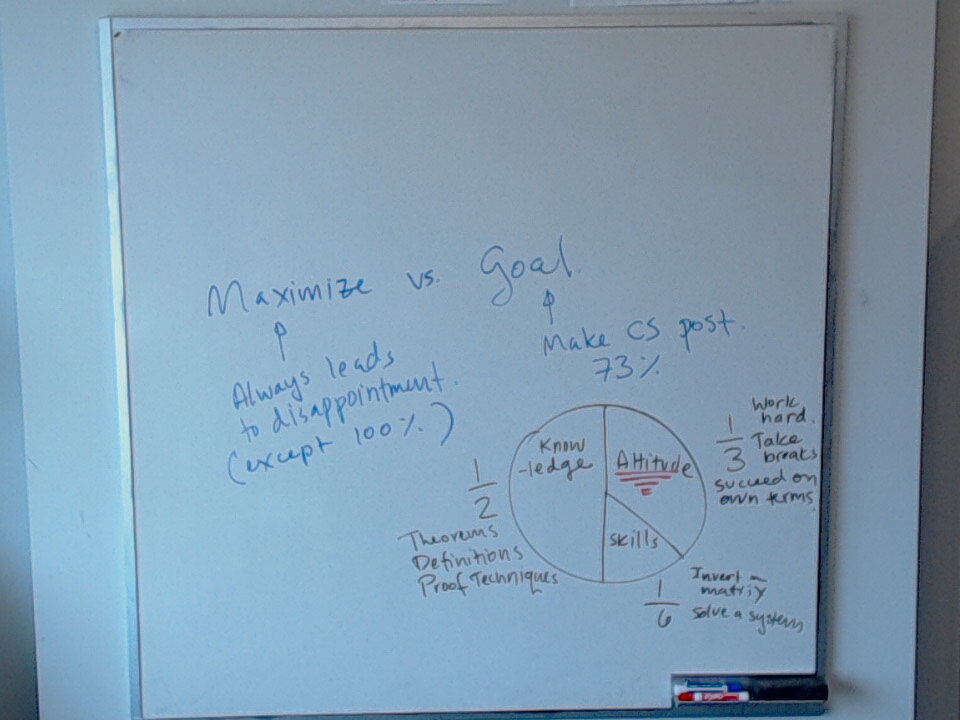 Maximize vs. Goal.
Always leads
to disappointment.
(except 100%)
Make CS post.
73%
Know
-ledge
Attitude
skills
1
2
Theorems
Definitions
Proof Techniques
1
3
Work
hard.
Take
breaks
succeed on
own terms.
1
6
Invert a
matrix
solve a system